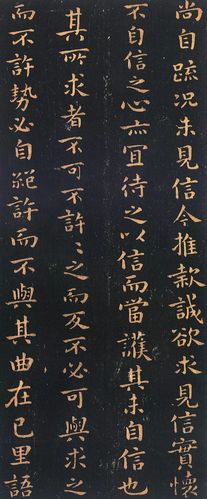 尚自疏况未見信今推款誠欲求見信實懷
不自信之心亦冝待之以信而當護其未自信也
其所求者不可不許々之而反不必可與求之
而不許勢必自絕許而不與其曲在已里語